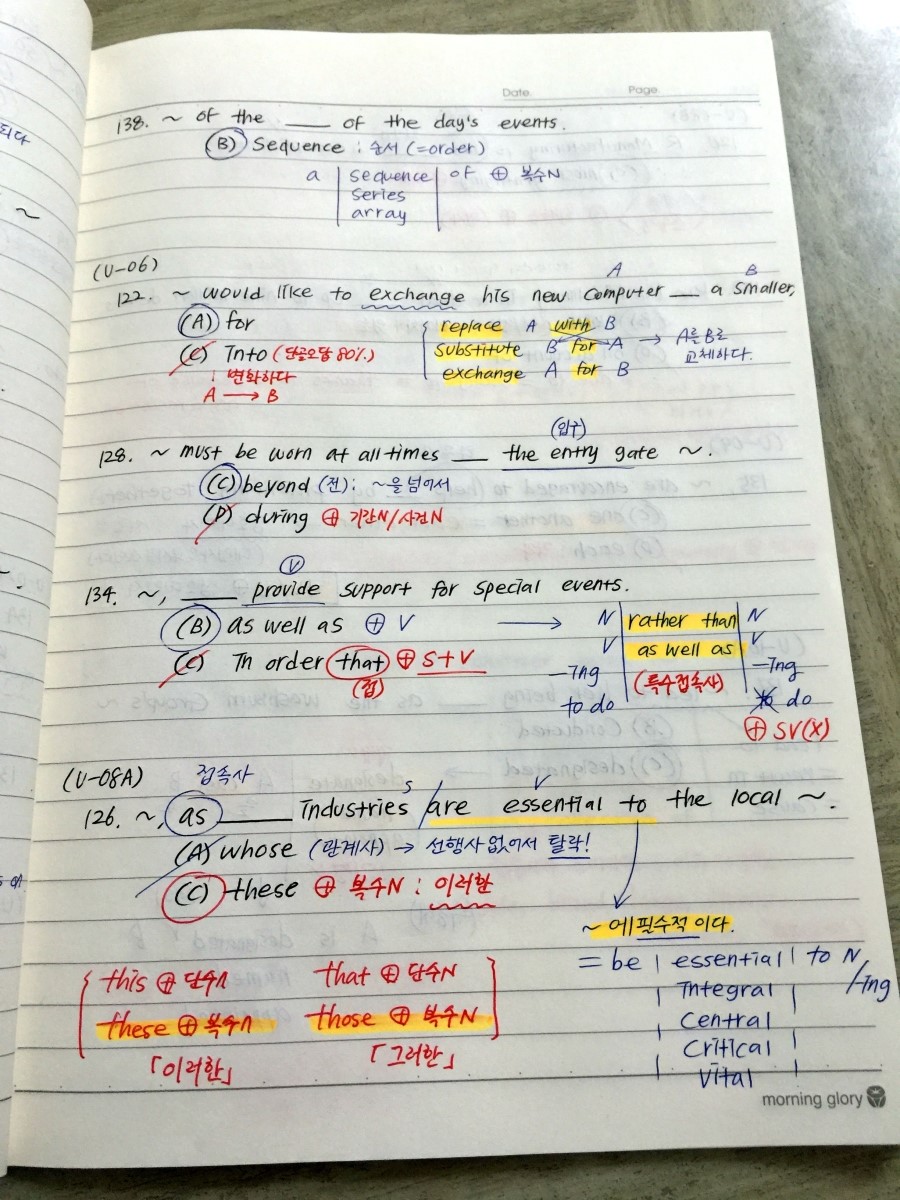 되다
Date. Page.
138. ~ of the ____ of the day's events.
(B) Sequence : 순서 (=order)
a | sequence | of ⊕ 복수N
series
array
(U-06)
A B
122. ~ would like to exchange his new computer __ a smaller,
(A) for
(C) Into (단골오답 80%)
: 변화하다
A → B
replace A with B
substitute B for A → A를 B로 교체하다.
exchange A for B
(입구)
128. ~ must be worn at all times __ the entry gate ~.
(C) beyond (전): ~을 넘어서
(D) during ⊕ 기간N/사건N
(V)
134. ~, ____ provide support for special events.
(B) as well as ⊕ V →
(C) In order that ⊕ S+V
(접)
N | rather than | N
V | as well as | V
-ing (특수접속사) -ing
to do to do
⊕ SV(X)
(U-08A) 접속사
S V
126. ~, as ____ Industries / are essential to the local ~.
(A) whose (관계사) → 선행사 없어서 탈락!
(C) these ⊕ 복수N : 이러한
~에 필수적이다.
= be | essential | to N/-ing
Integral
Central
Critical
Vital
this ⊕ 단수N that ⊕ 단수N
these ⊕ 복수N those ⊕ 복수N
「이러한」 「그러한」
morning glory